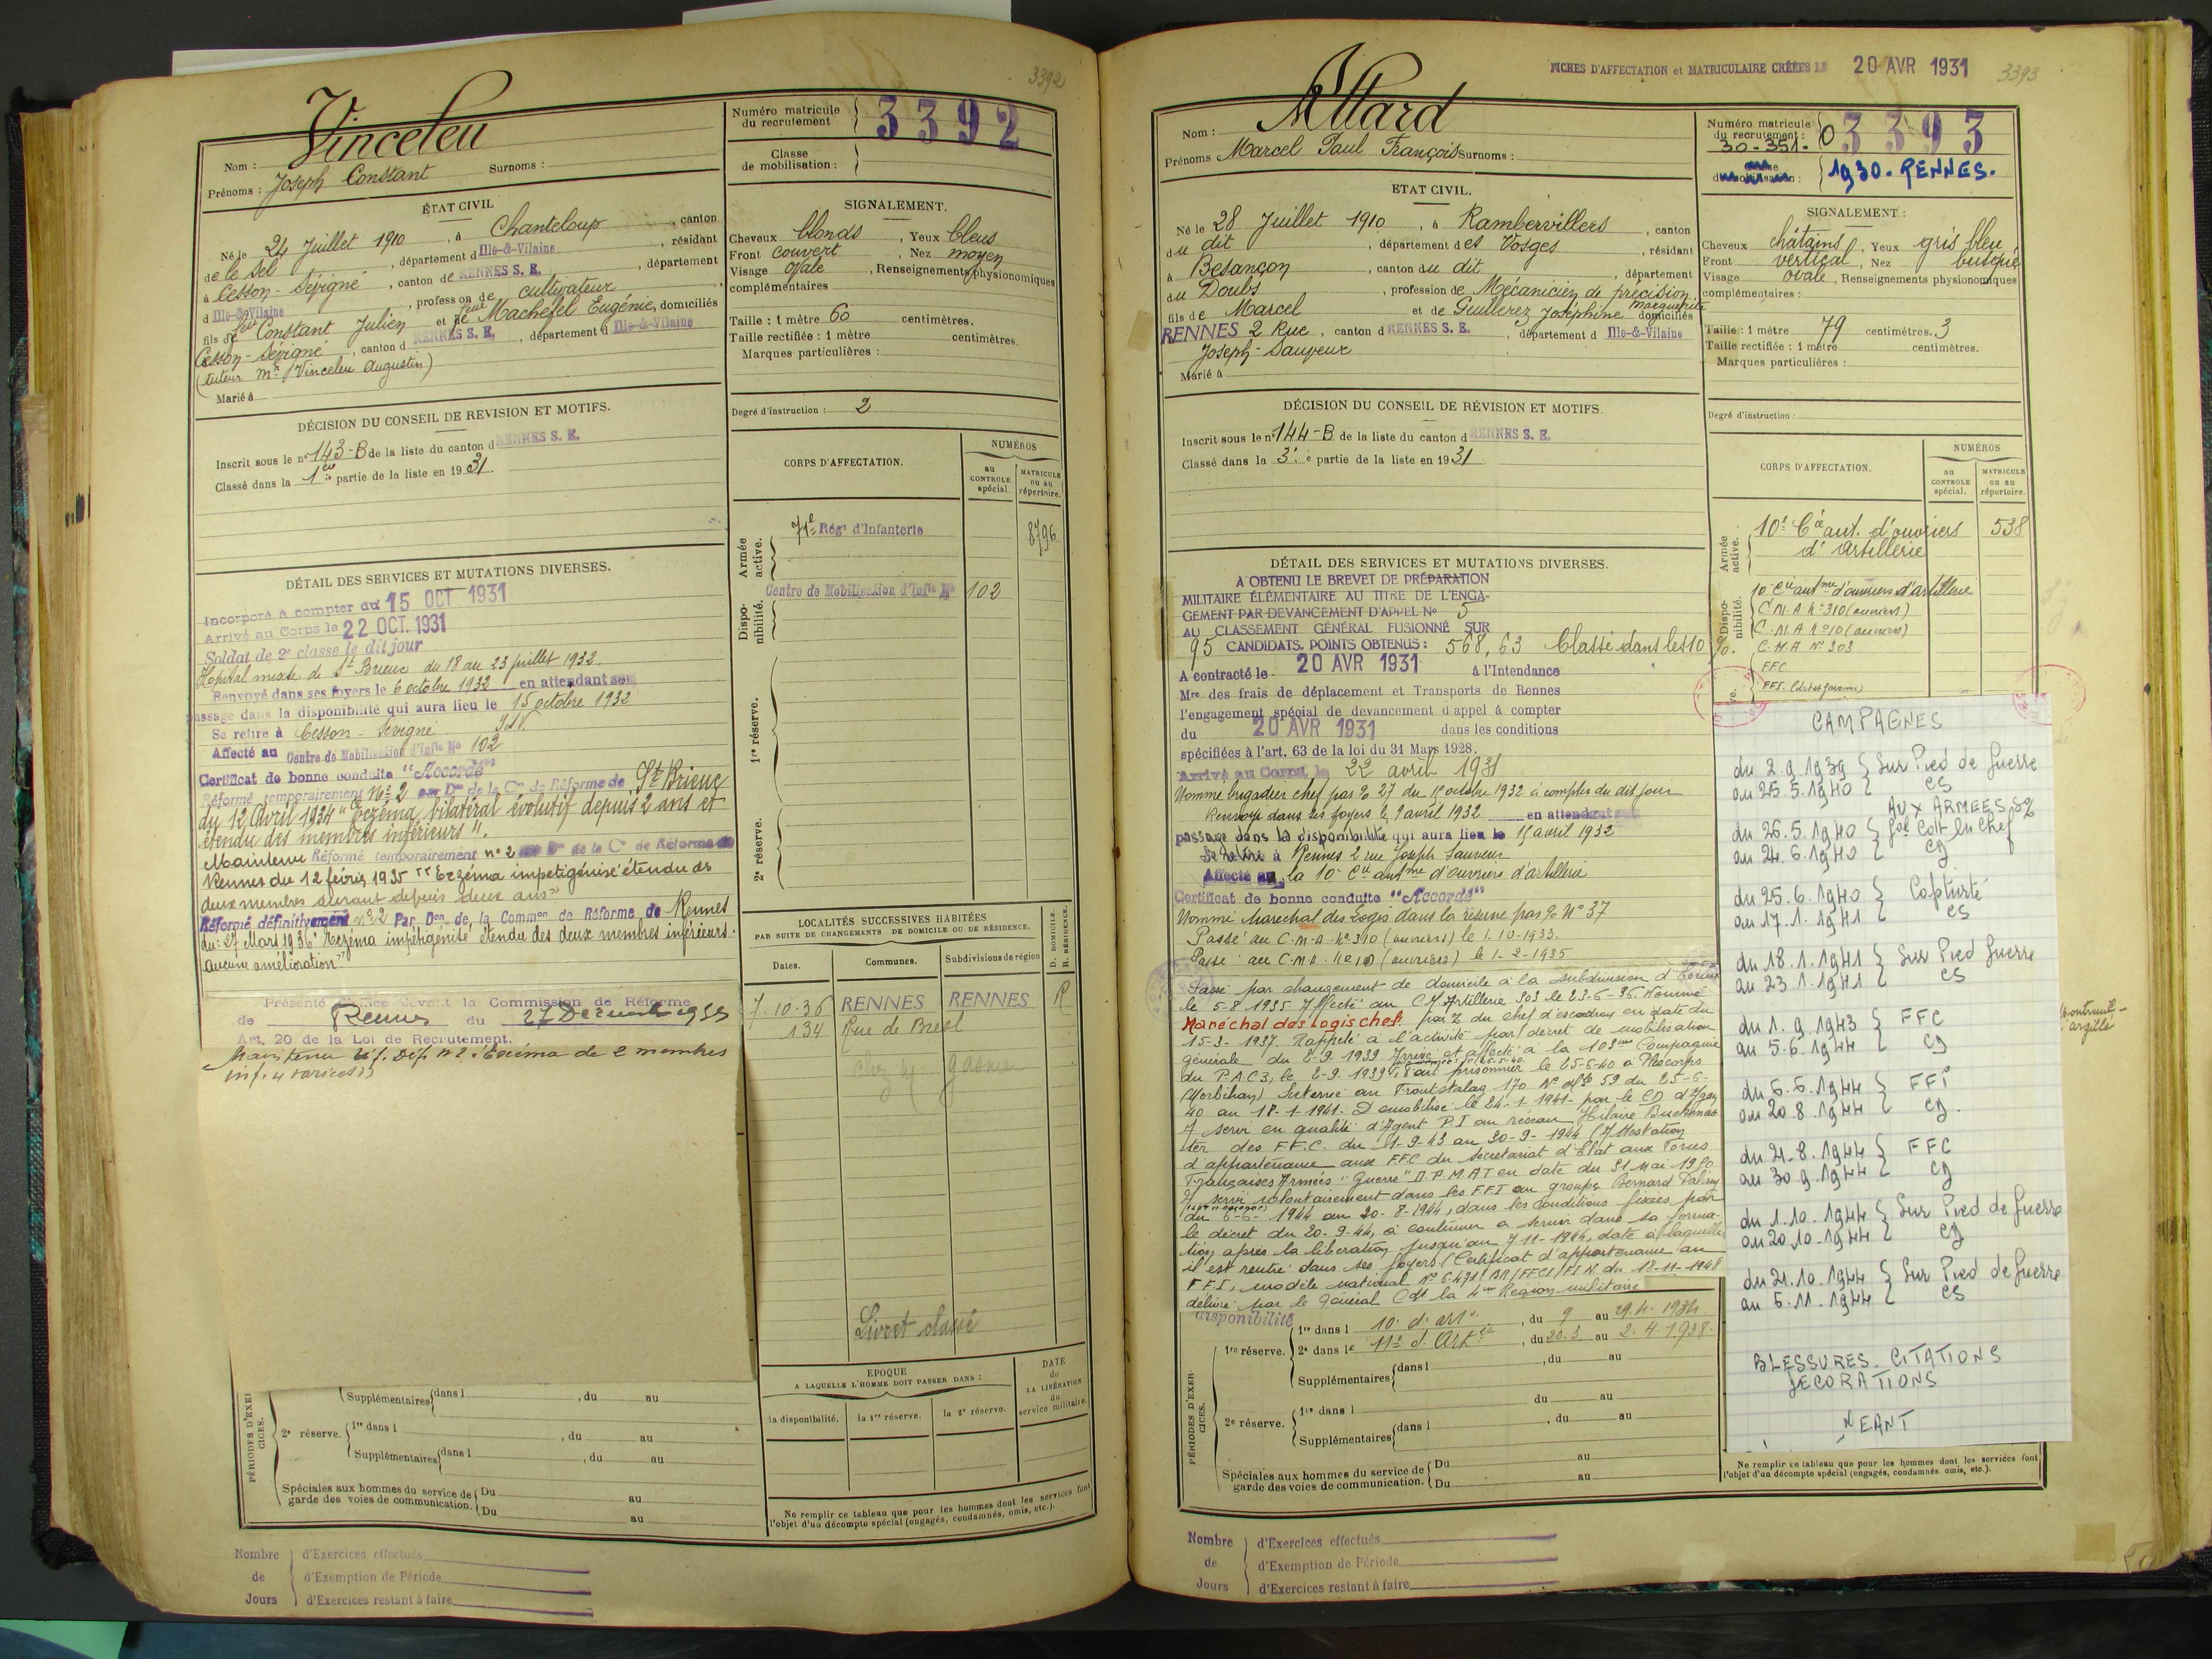 3392
Vinceleu
Nom :
Prénoms : Joseph Constant Surnoms :
Numéro matricule du recrutement 3392
Classe de mobilisation :
ÉTAT CIVIL
Né le 24 Juillet 1910, à Chanteloup, canton
de le Sel, département d Ille-&-Vilaine, résidant
à Cesson-Sévigné, canton de RENNES S. E., département
d Ille-&-Vilaine, profession de cultivateur
fils de feu Constant Julien et de feue Machefel Eugénie, domiciliés
Cesson-Sévigné, canton d RENNES S. E., département d Ille-&-Vilaine
(tuteur Mr Vinceleu Augustin)
Marié à
SIGNALEMENT.
Cheveux blonds, Yeux bleus
Front couvert, Nez moyen
Visage ovale, Renseignements physionomiques
complémentaires
Taille : 1 mètre 60 centimètres.
Taille rectifiée : 1 mètre centimètres.
Marques particulières :
Degré d'instruction : 2
DÉCISION DU CONSEIL DE REVISION ET MOTIFS.
Inscrit sous le n° 143-B de la liste du canton d RENNES S. E.
Classé dans la 1ère partie de la liste en 1931.
CORPS D'AFFECTATION.
NUMÉROS
au CONTROLE spécial.
MATRICULE ou au répertoire.
Armée active.
71e Régt d'Infanterie 8796
Disponibilité.
Centre de Mobilisation d'Infie No 102
1re réserve.
2e réserve.
DÉTAIL DES SERVICES ET MUTATIONS DIVERSES.
Incorporé à compter du 15 OCT 1931
Arrivé au Corps le 22 OCT. 1931
Soldat de 2e classe le dit jour
Hôpital mixte de St Brieuc du 18 au 23 juillet 1932.
Renvoyé dans ses foyers le 6 octobre 1932 en attendant son
passage dans la disponibilité qui aura lieu le 15 octobre 1932
Se retire à Cesson-Sévigné I&V.
Affecté au Centre de Mobilisation d'Infie No 102
Certificat de bonne conduite "Accordé"
Réformé temporairement N° 2 par Don de la Con de Réforme de St Brieuc
du 12 Avril 1934 "Eczéma bilatéral évolutif depuis 2 ans et
étendu des membres inférieurs".
Maintenu Réformé temporairement n° 2 par Don de la Con de Réforme de
Rennes du 12 février 1935 "Eczéma impetigénisé étendu des
deux membres suivant depuis deux ans"
Réformé définitivement n° 2 Par Don de la Common de Réforme de Rennes
du : 27 Mars 1936 "Eczéma impétigénisé étendu des deux membres inférieurs.
Aucune amélioration"
Présenté devant la Commission de Réforme
de Rennes du 27 Decembre 1939
Art. 20 de la Loi de Recrutement.
Maintenu Réf. Déf. n° 2 : Eczéma de 2 membres
inf. 4 varices"
LOCALITÉS SUCCESSIVES HABITÉES
PAR SUITE DE CHANGEMENTS DE DOMICILE OU DE RÉSIDENCE.
Dates. Communes. Subdivisions de région D. DOMICILE. R. RÉSIDENCE.
7.10.36 RENNES RENNES R
134 Rue de Brest
chez Mr
Livret classé
EPOQUE
A LAQUELLE L'HOMME DOIT PASSER DANS :
la disponibilité. la 1re réserve. la 2e réserve.
DATE de LA LIBÉRATION du service militaire.
PÉRIODES D'EXERCICES.
Supplémentaires dans l , du au
2e réserve. 1re dans l , du au
Supplémentaires dans l , du au
Spéciales aux hommes du service de garde des voies de communication. Du au
Du au
Ne remplir ce tableau que pour les hommes dont les services font
l'objet d'un décompte spécial (engagés, condamnés, omis, etc.).
Nombre de Jours
d'Exercices effectués
d'Exemption de Période
d'Exercices restant à faire
FICHES D'AFFECTATION et MATRICULAIRE CRÉÉES LE 20 AVR 1931
3393
Nom : Allard
Prénoms Marcel Paul François Surnoms :
Numéro matricule du recrutement : 0 3393
30-351-
Classe de mobilisation : 1930. RENNES.
ETAT CIVIL.
Né le 28 Juillet 1910, à Rambervillers, canton
du dit, département des Vosges, résidant
à Besançon, canton du dit, département
du Doubs, profession de Mécanicien de précision
fils de Marcel et de Guillerez Joséphine Marguerite domiciliés
RENNES 2 Rue, canton d RENNES S. E., département d Ille-&-Vilaine
Joseph-Sauveur
Marié à
SIGNALEMENT :
Cheveux châtains, Yeux gris bleu
Front vertical, Nez busqué
Visage ovale, Renseignements physionomiques
complémentaires :
Taille : 1 mètre 79 centimètres. 3
Taille rectifiée : 1 mètre centimètres.
Marques particulières :
Degré d'instruction :
DÉCISION DU CONSEIL DE RÉVISION ET MOTIFS.
Inscrit sous le n° 144-B de la liste du canton d RENNES S. E.
Classé dans la 3e partie de la liste en 1931
CORPS D'AFFECTATION.
NUMÉROS
au CONTROLE spécial.
MATRICULE ou au répertoire.
Armée active.
10e Cie aut. d'ouvriers 538
d'artillerie
Disponibilité.
10e Cie autme d'ouvriers d'artillerie
C.M.A n° 310 (ouvriers)
C.M.A n° 10 (ouvriers)
C.M.A N° 303
FFC
FFI.
DÉTAIL DES SERVICES ET MUTATIONS DIVERSES.
A OBTENU LE BREVET DE PRÉPARATION
MILITAIRE ÉLÉMENTAIRE AU TITRE DE L'ENGA-
GEMENT PAR DEVANCEMENT D'APPEL No 5
AU CLASSEMENT GÉNÉRAL FUSIONNÉ SUR
95 CANDIDATS. POINTS OBTENUS : 568,63 Classé dans les 10 %.
A contracté le 20 AVR 1931 à l'Intendance
Mre des frais de déplacement et Transports de Rennes
l'engagement spécial de devancement d'appel à compter
du 20 AVR 1931 dans les conditions
spécifiées à l'art. 63 de la loi du 31 Mars 1928.
Arrivé au Corps le 22 avril 1931
Nommé brigadier chef par 27 du 1er octobre 1932 à compter du dit jour
Renvoyé dans ses foyers le 9 avril 1932 en attendant son
passage dans la disponibilité qui aura lieu le 15 avril 1932
Se retire à Rennes 2 rue Joseph Sauveur
Affecté à la 10e Cie autme d'ouvriers d'artillerie
Certificat de bonne conduite "Accordé"
Nommé Maréchal des Logis dans la réserve par N° 37
Passé au C.M.A. n° 310 (ouvriers) le 1.10-1933.
Passé au C.M.A. n° 10 (ouvriers) le 1-2-1935
Passé par changement de domicile à la subdivision d
le 5-8-1935 Affecté au C.M Artillerie 303 le 23-6-36 Nommé
Maréchal des logis chef par du chef d'escadron en date du
15-3-1937. Rappelé à l'activité par décret de mobilisation
générale du 2-9-1939 Arrivé et affecté à la 103me Compagnie
du P.A.C3, le 2-9-1939 Fait prisonnier le 25-6-40 à Plocorps
(Morbihan) Interné au Frontstalag 170 N° 59 du 25-6-
40 au 18-1-1941. Démobilisé le 24-1-1941- par le CD d'Agen
A servi en qualité d'Agent P.I au réseau Hilaire Buckmas
ter des F.F.C. du 1-9-43 au 30-9-1944 (Attestation
d'appartenance aux FFC du secrétariat d'Etat aux Forces
Françaises Armées "Guerre" D.P.M.AT en date du 31 Mai 1950
A servi volontairement dans les FFI au groupe Bernard Palissy
du 6-6-1944 au 20-8-1944, dans les conditions fixées par
le décret du 20-9-44, a continué a servir dans sa forma-
tion après la libération jusqu'au 7-11-1944, date à laquelle
il est rentré dans ses foyers (Certificat d'appartenance au
F.F.I, modèle national N° 6.471/BR/FFCI/FIN. du 18-11-1948
délivré par le Général Cdt la 4me Région militaire
CAMPAGNES
du 2.9.1939 au 25.5.1940 } Sur Pied de Guerre CS
du 26.5.1940 au 24.6.1940 } AUX ARMEES CD
du 25.6.1940 au 17.1.1941 } Captivité CS
du 18.1.1941 au 23.1.1941 } Sur Pied Guerre CS
du 1.9.1943 au 5.6.1944 } FFC CD
du 6.6.1944 au 20.8.1944 } FFI CD.
du 21.8.1944 au 30.9.1944 } FFC CD
du 1.10.1944 au 20.10.1944 } Sur Pied de Guerre CD
du 21.10.1944 au 6.11.1944 } Sur Pied de Guerre CS
BLESSURES. CITATIONS
DECORATIONS
NEANT
disponibilité
PÉRIODES D'EXERCICES.
1re réserve. 1re dans l 10e d'art, du 9 au 29.4.1934.
2e dans le 11e d. Artie, du 20.3 au 2.4.1938.
Supplémentaires dans l , du au
du au
2e réserve. 1re dans l du au
Supplémentaires dans l , du au
Spéciales aux hommes du service de garde des voies de communication. Du au
Du au
Ne remplir ce tableau que pour les hommes dont les services font
l'objet d'un décompte spécial (engagés, condamnés omis, etc.).
Nombre de Jours
d'Exercices effectués
d'Exemption de Période
d'Exercices restant à faire